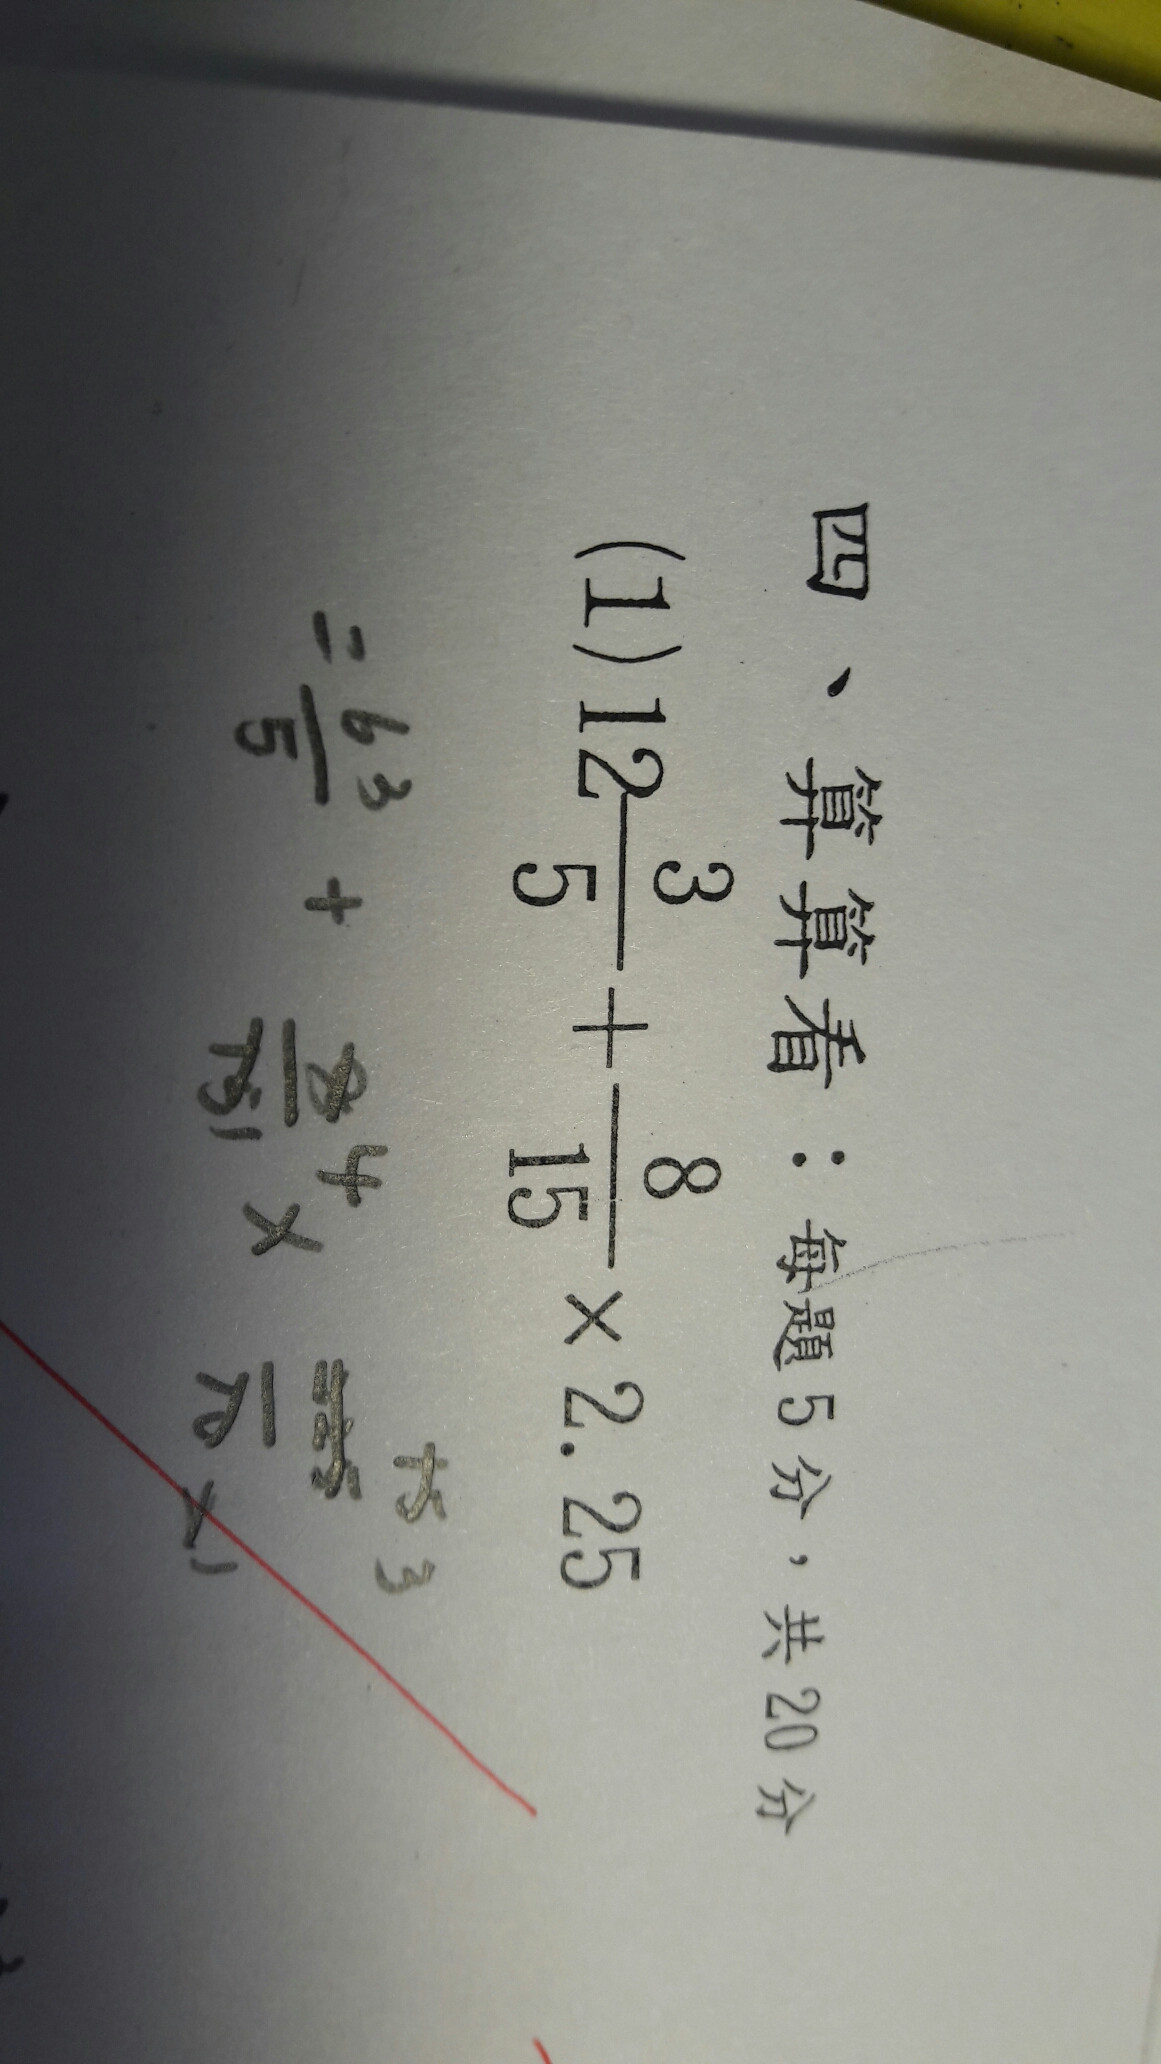 四、算算看：每題5分，共20分
(1)12 3/5 + 8/15 × 2.25
= 63/5 + 8/15 4 1 × 15 3
10 2 1